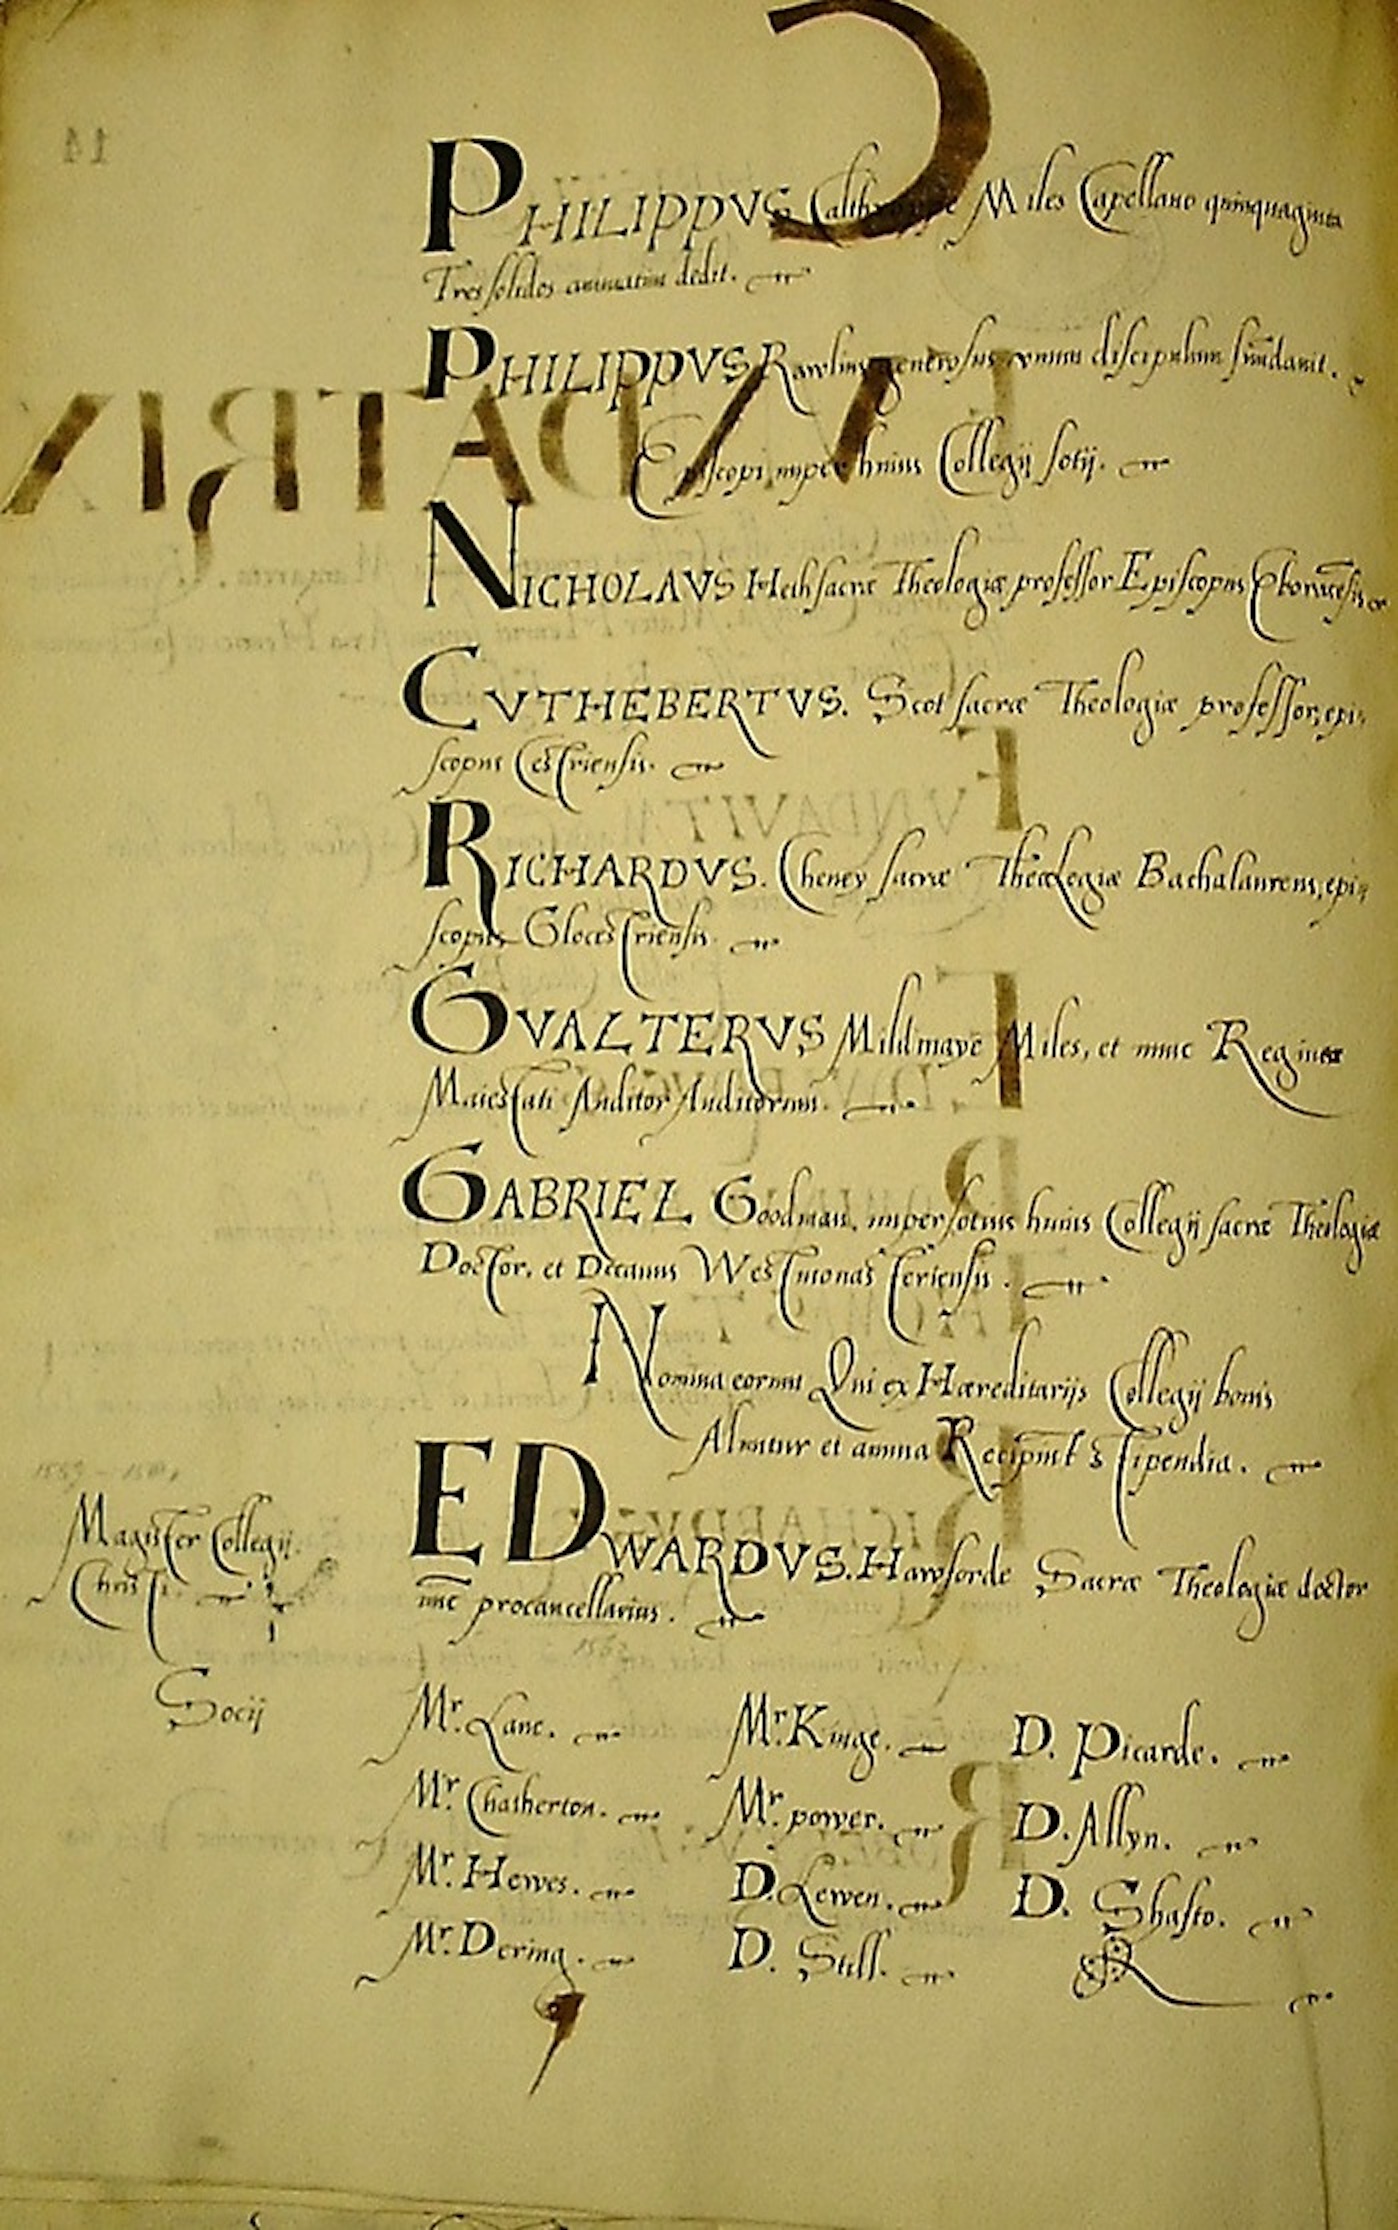 PHILIPPVS Calthroppe Miles Capellano quinquaginta
Tres solidos annuatim dedit.
PHILIPPVS Rawlins generosus vnum discipulum fundauit.
Episcopi nuper huius Collegij sotij.
NICHOLAVS Heth sacræ Theologiæ professor Episcopus Eboracēsis
CVTHEBERTVS. Scot sacræ Theologiæ professor, epi-
scopus Cestriensis.
RICHARDVS. Cheney sacræ Theologiæ Bachalaureus, epi-
scopus Glocestriensis.
GVALTERVS Mildmaye Miles, et nunc Reginæ
Maiestati Auditor Auditorum.
GABRIEL Goodman, nuper sotius huius Collegij sacræ Theologiæ
Doctor, et Decanus Westmonasteriensis.
Nomina eorum Qui ex Hæreditarijs Collegij bonis
Aluntur et annua Recipiunt Stipendia.
1559 - 1581
EDWARDVS. Hawforde Sacræ Theologiæ doctor
Magister Collegij
Christi.
nūc procancellarius.
1563
Socij
Mr. Lane. Mr. Kinge. D. Picarde.
Mr. Chatherton. Mr. power. D. Allyn.
Mr. Hewes. D. Lewen. D. Shafto.
Mr. Dering. D. Still.